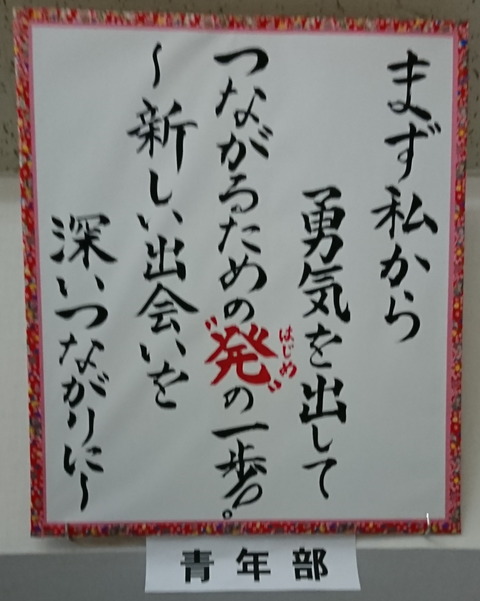 まず私から
勇気を出して
つながるための〝発〟の一歩!。
はじめ
~新しい出会いを
深いつながりに~
青年部